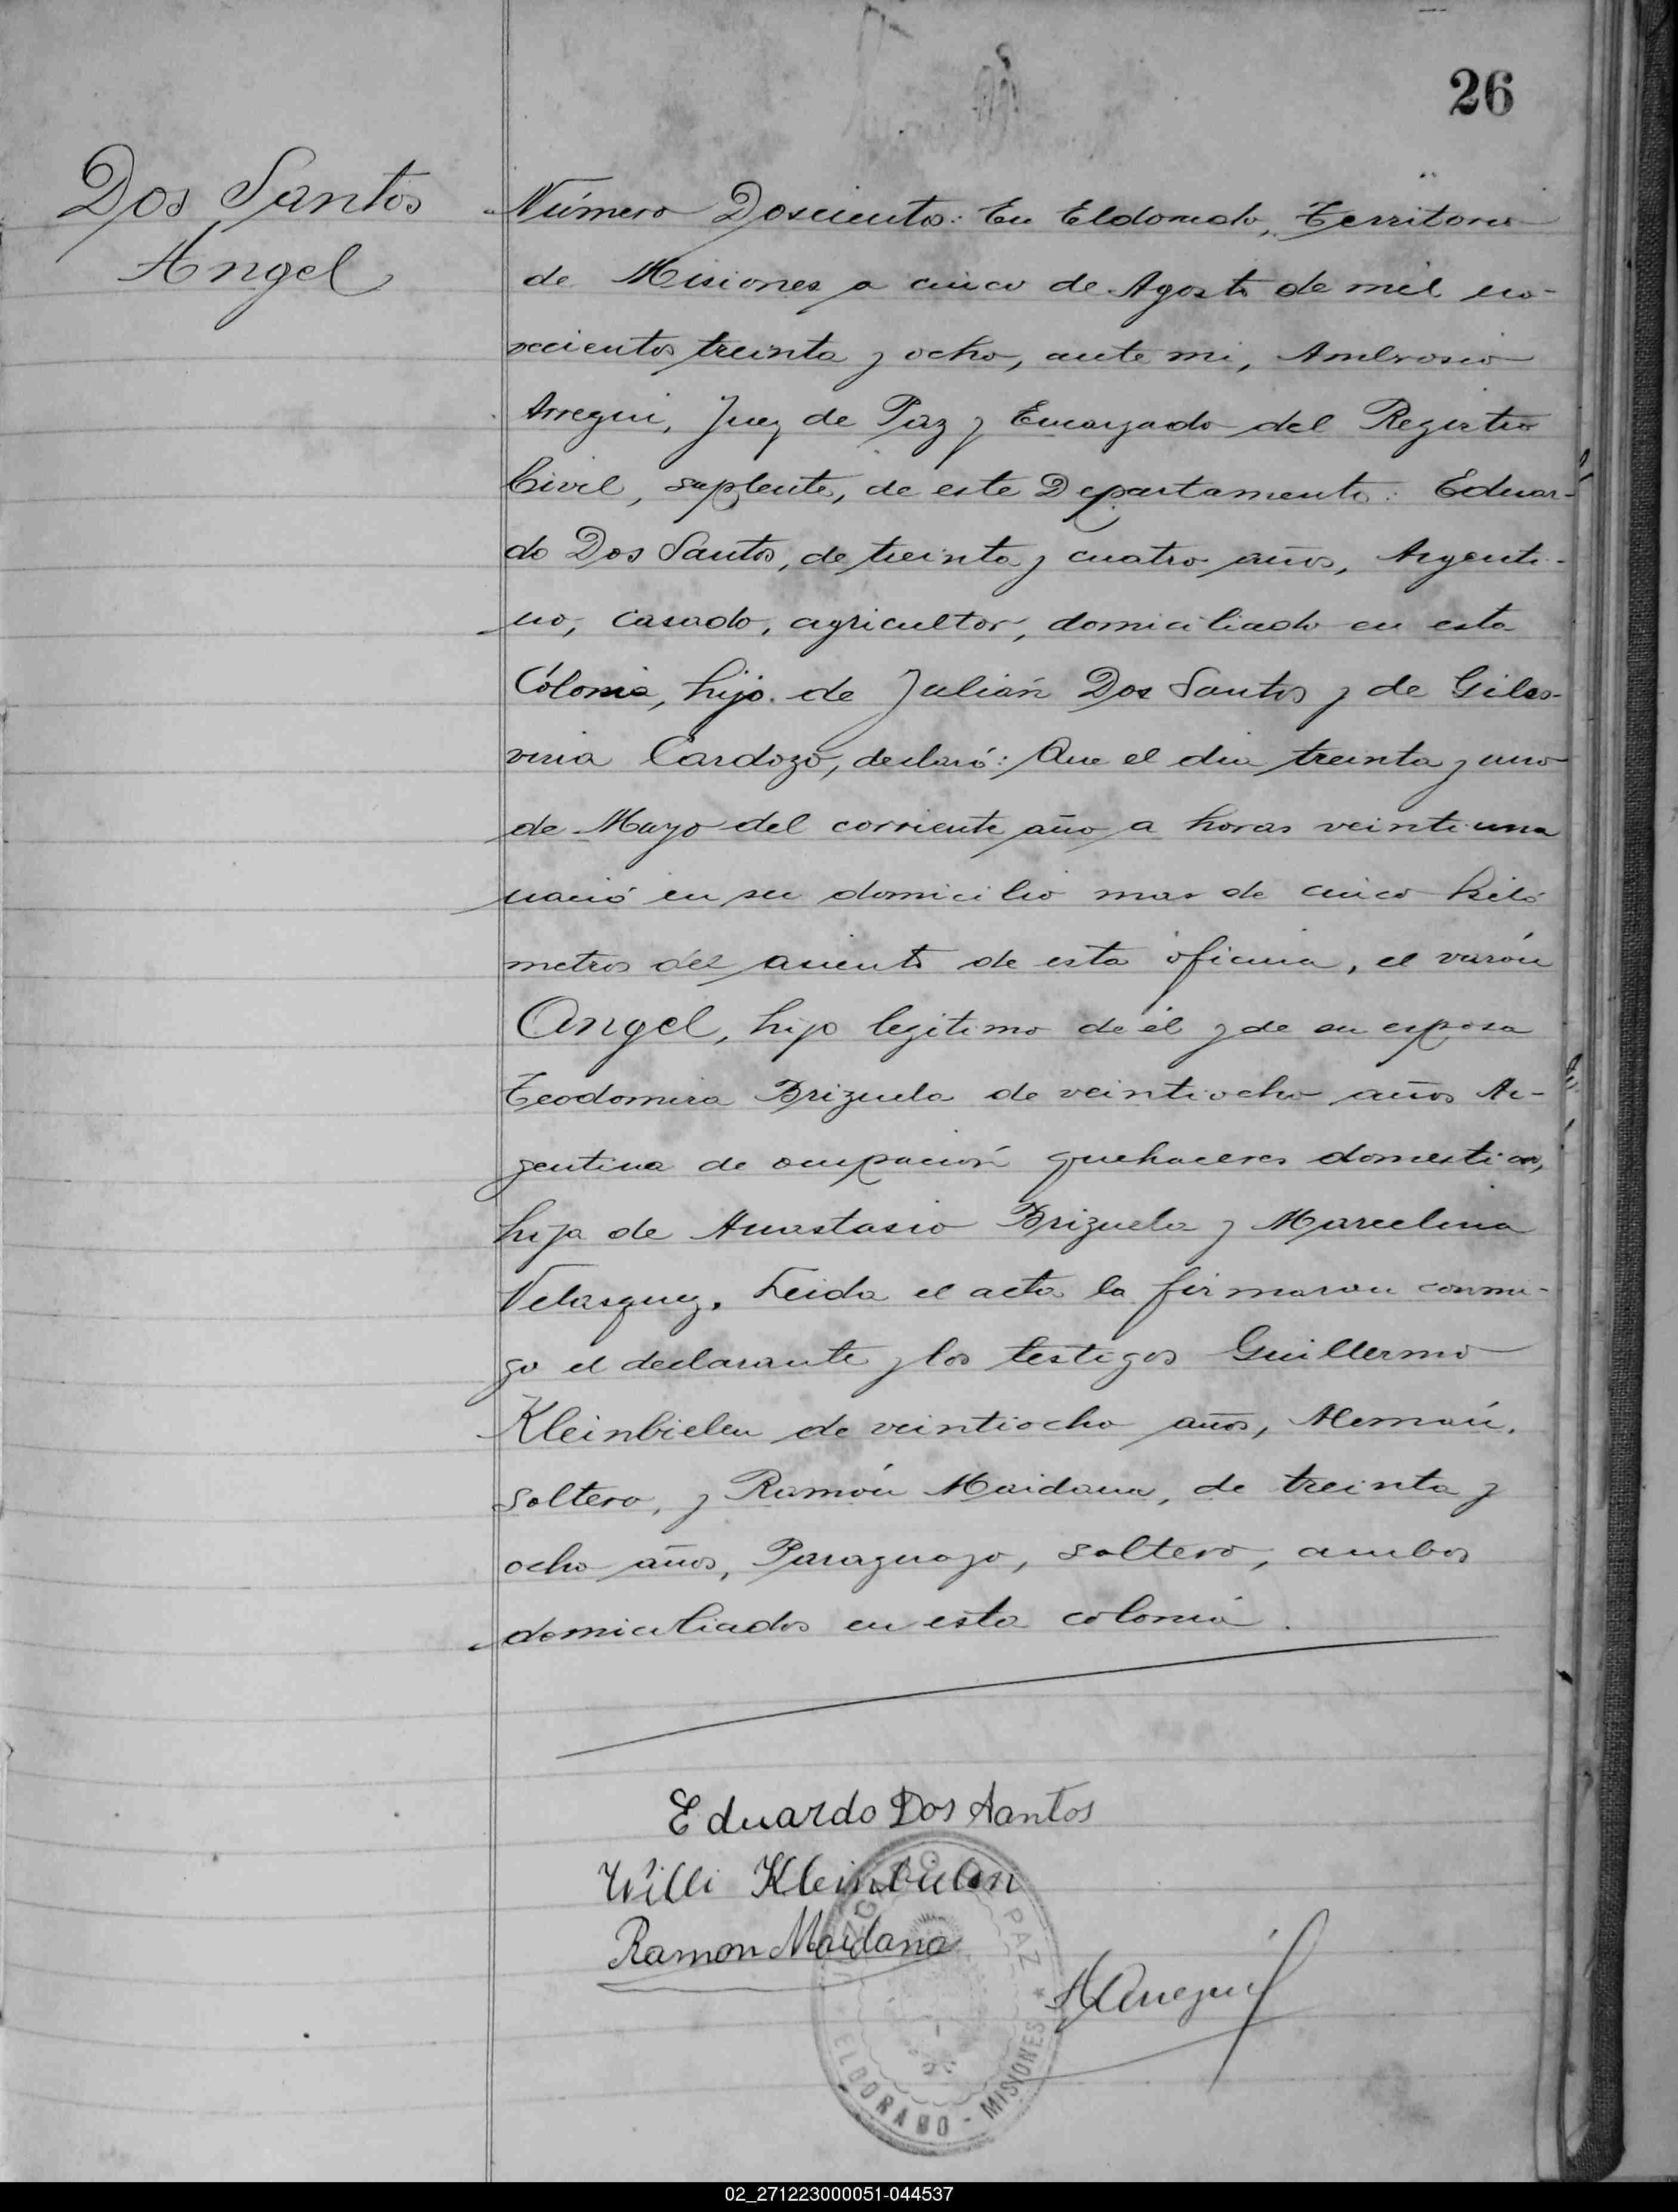 26
Dos Santos
Angel
Número Doscientos: En Eldorado, Territorio
de Misiones a cinco de Agosto de mil no-
vecientos treinta y ocho, ante mi, Ambrosio
Arregui, Juez de Paz y Encargado del Registro
Civil, suplente, de este Departamento: Eduar-
do Dos Santos, de treinta y cuatro años, Argenti-
no, casado, agricultor, domiciliado en esta
Colonia, hijo de Julián Dos Santos y de
Cardozo, declaró: Que el dia treinta y uno
de Mayo del corriente año a horas veintiuna
nació en su domicilio mas de cinco kiló
metros del asiento de esta oficina, el varón
Angel, hijo legitimo de él y de su esposa
Teodomira Brizuela de veintiocho años Ar-
gentina de ocupación quehaceres domesticos,
hija de Anastasio Brizuela y Marcelina
Velasquez. Leida el acta la firmaron conmi-
go el declarante y los testigos Guillermo
Kleinbielen de veintiocho años, Alemán,
soltero, y Ramón Maidana, de treinta y
ocho años, Paraguayo, soltero, ambos
domiciliados en esta colonia.
Eduardo Dos Santos
Willi Kleinbielen
Ramon Maidana
AArregui
JUZGADO DE PAZ * ELDORADO - MISIONES *
02_271223000051-044537